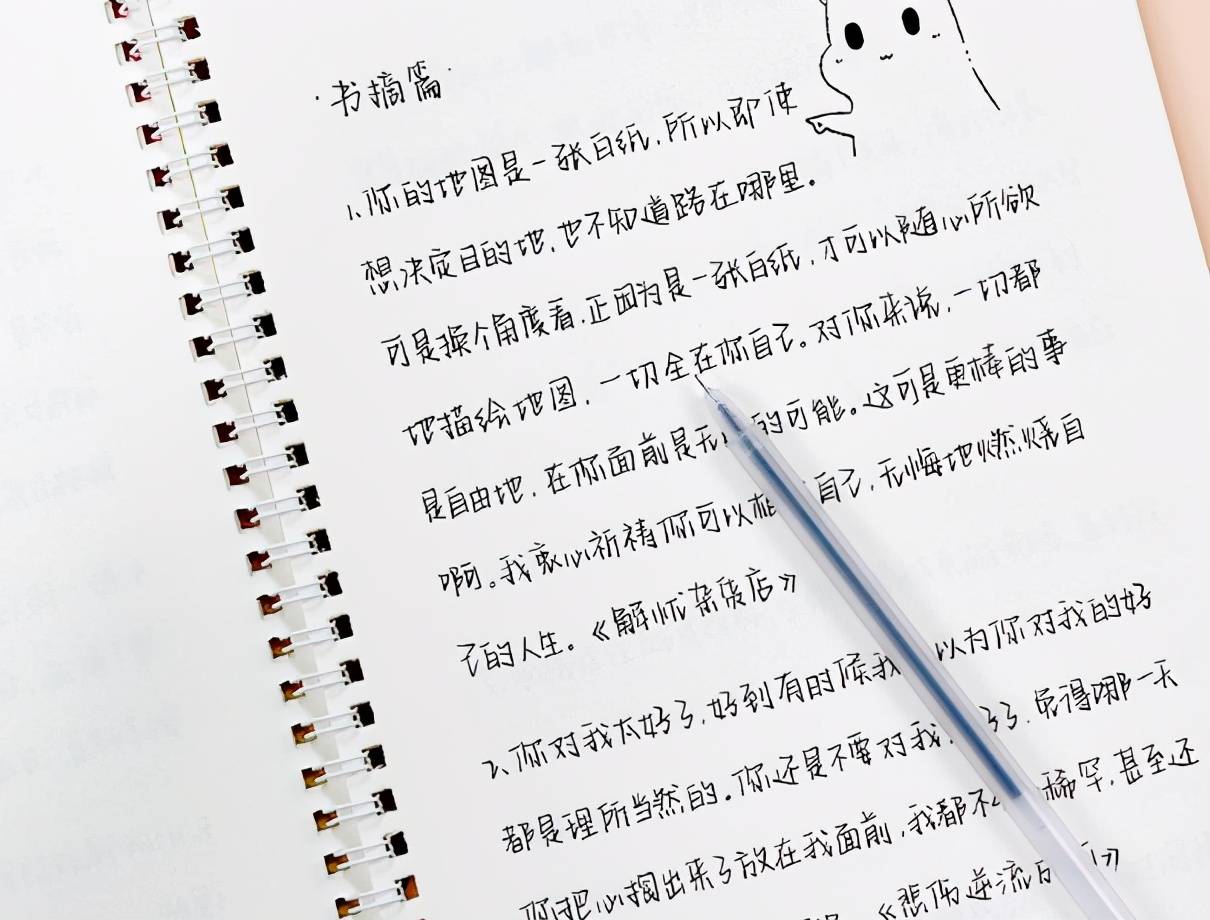 ·书摘篇·
1、你的地图是一张白纸，所以即使
想决定目的地，也不知道路在哪里。
可是换个角度看，正因为是一张白纸，才可以随心所欲
地描绘地图，一切全在你自己。对你来说，一切都
是自由地，在你面前是无的可能。这可是更棒的事
啊。我衷心祈祷你可以相自己，无悔地燃烧自
己的人生。《解忧杂货店》
2、你对我太好了，好到有时候我以为你对我的好
都是理所当然的。你还是不要对我了，免得哪一天
你把心掏出来了放在我面前，我都不稀罕，甚至还
《悲伤逆流》